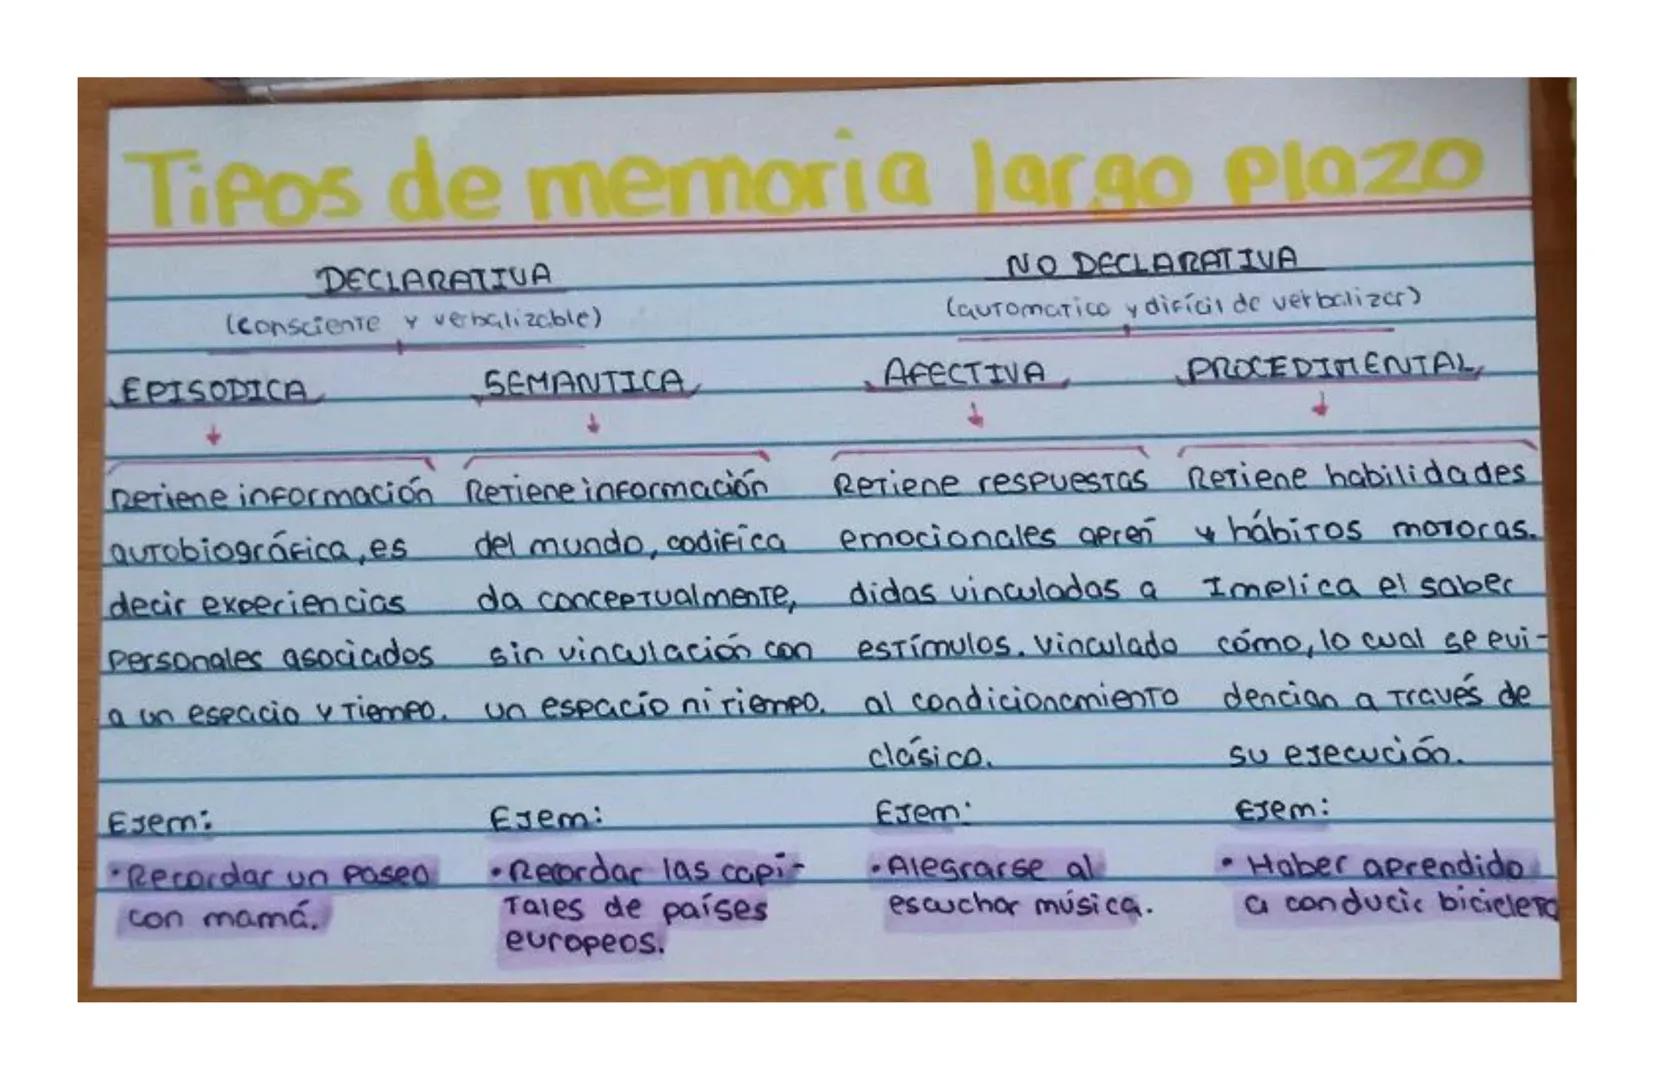 Tipos de memoria largo plazo
DECLARATIVA
(consciente y verbalizable)
EPISODICA
Retiene información
autobiográfica, es
decir experiencias
personales asociados
a un espacio y tiempo.
Ejem:
• Recordar un paseo
con mamá.
SEMANTICA
Retiene información
del mundo, codifica
da conceptualmente,
sin vinculación con
un espacio ni tiempo.
Ejem:
• Recordar las capi-
tales de países
europeos.
NO DECLARATIVA
(automatico y difícil de verbalizar)
AFECTIVA
Retiene respuestas
emocionales apren
didas vinculadas a
estímulos. Vinculado
al condicionamiento
clásico.
Ejem:
• Alegrarse al
escuchar música.
PROCEDIMENTAL
Retiene habilidades
y hábitos motoras.
Implica el saber
cómo, lo cual se evi-
dencian a través de
su ejecución.
Ejem:
• Haber aprendido
a conducir bicicleta